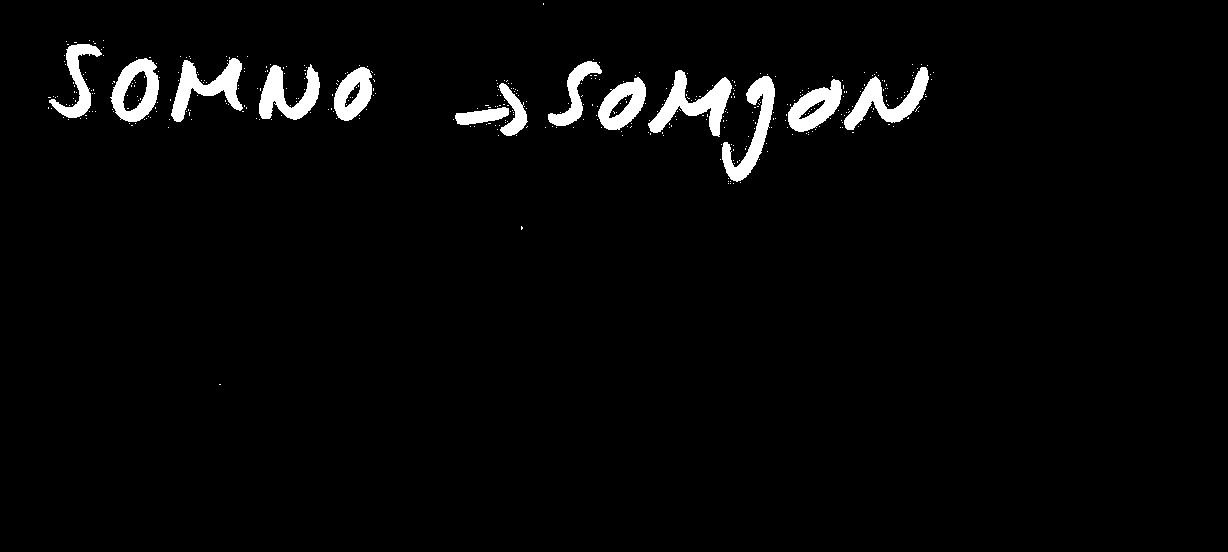 SOMNO → SOMJON